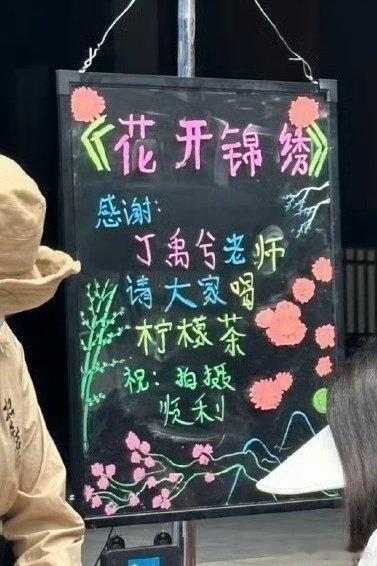 《花开锦绣》
感谢：
丁禹兮老师
请大家喝
柠檬茶
祝：拍摄
顺利